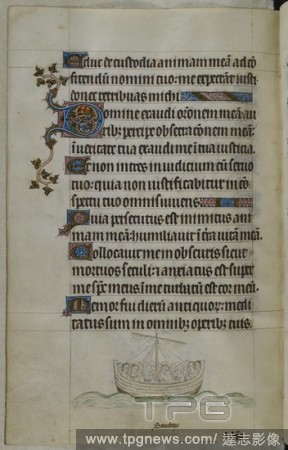 Educ de custodia animam meā ad cō
fitendū nomini tuo: me expectāt iusti
donec retribuas michi
Domine exaudi oōonem meā: au
ribȝ percipe obsecracōnem meā:
in ueritate tua exaudi me ī tua iusticia.
Et non intres in iudicium cū seruo
tuo: quia non iustificabitur in cō
spectu tuo omnis uiuens
Quia persecutus est inimicus ani
mam meā: humiliauit ī t̄ra uitā meā.
Collocauit me in obscuris sicut
mortuos seculi: ⁊ anxiatus est super
me sp̄c meus ī me turbatū est cor meū.
Memor fui dierū antiquorȝ: medi
tatus sum in omnibȝ operibȝ tuis.
TPG
www.tpgnews.com/達志影像